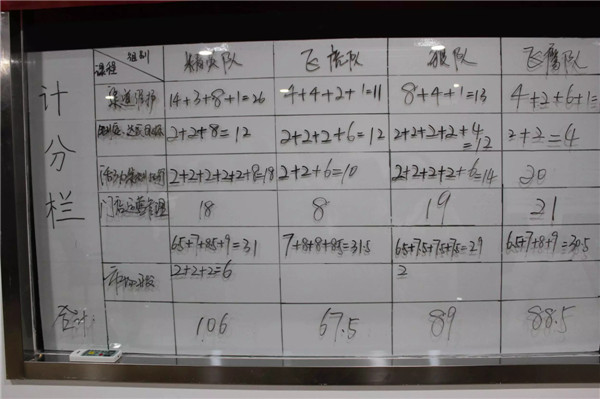 计分栏
组别
课程
队 飞虎队 狼队 飞鹰队
渠道维护 14+3+8+1=26 4+4+2+1=11 8+4+1=13 4+2+6+1=
2+2+8=12 2+2+2+6=12 2+2+2+2+4=12 2+2=4
2+2+2+2+2+8=18 2+2+6=10 2+2+2+2+6=14 20
门店运营管理 18 8 19 21
6.5+7+8.5+9=31 7+8+8+8.5=31.5 6.5+7.5+7.5+7.5=29 6.5+7+8+9=30.5
2+2+2=6 2
合计 106 67.5 89 88.5